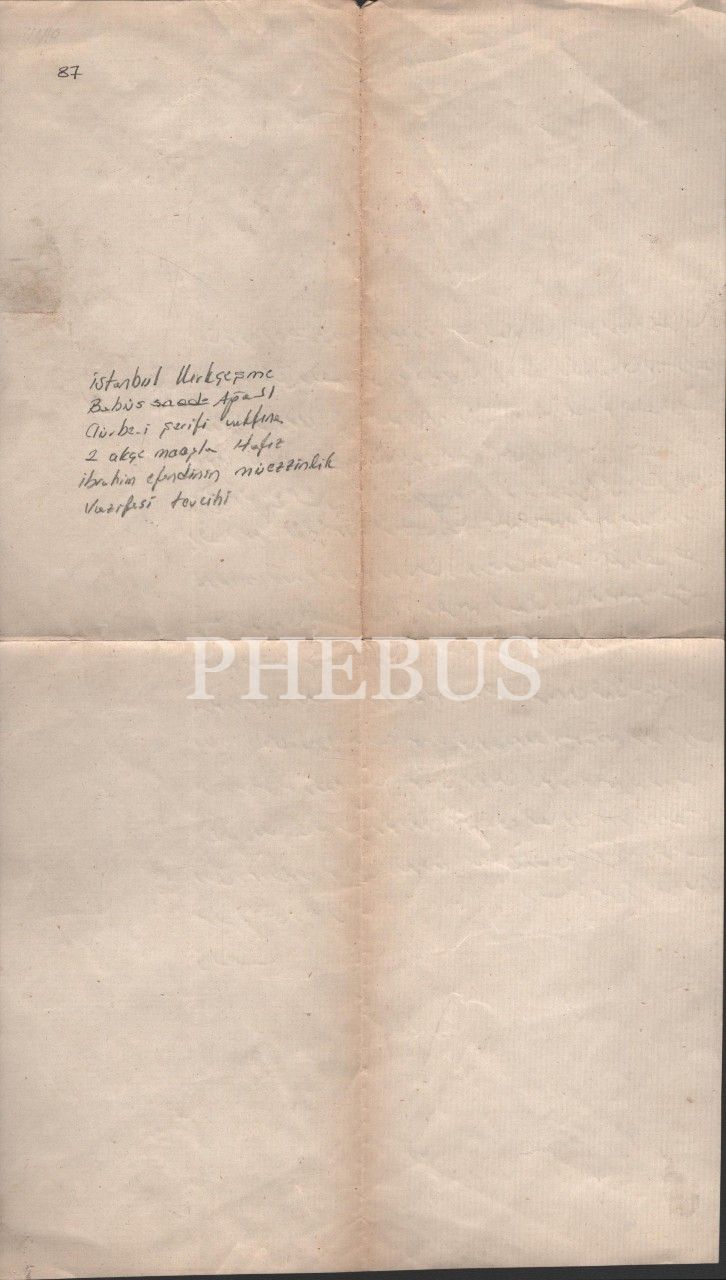 87
istanbul Kırkçeşme
Babüs saade Ağası
şerifi vakfına
2 akçe maaşla Hafız
ibrahim efendinin müezzinlik
vazifesi tevcihi
PHEBUS